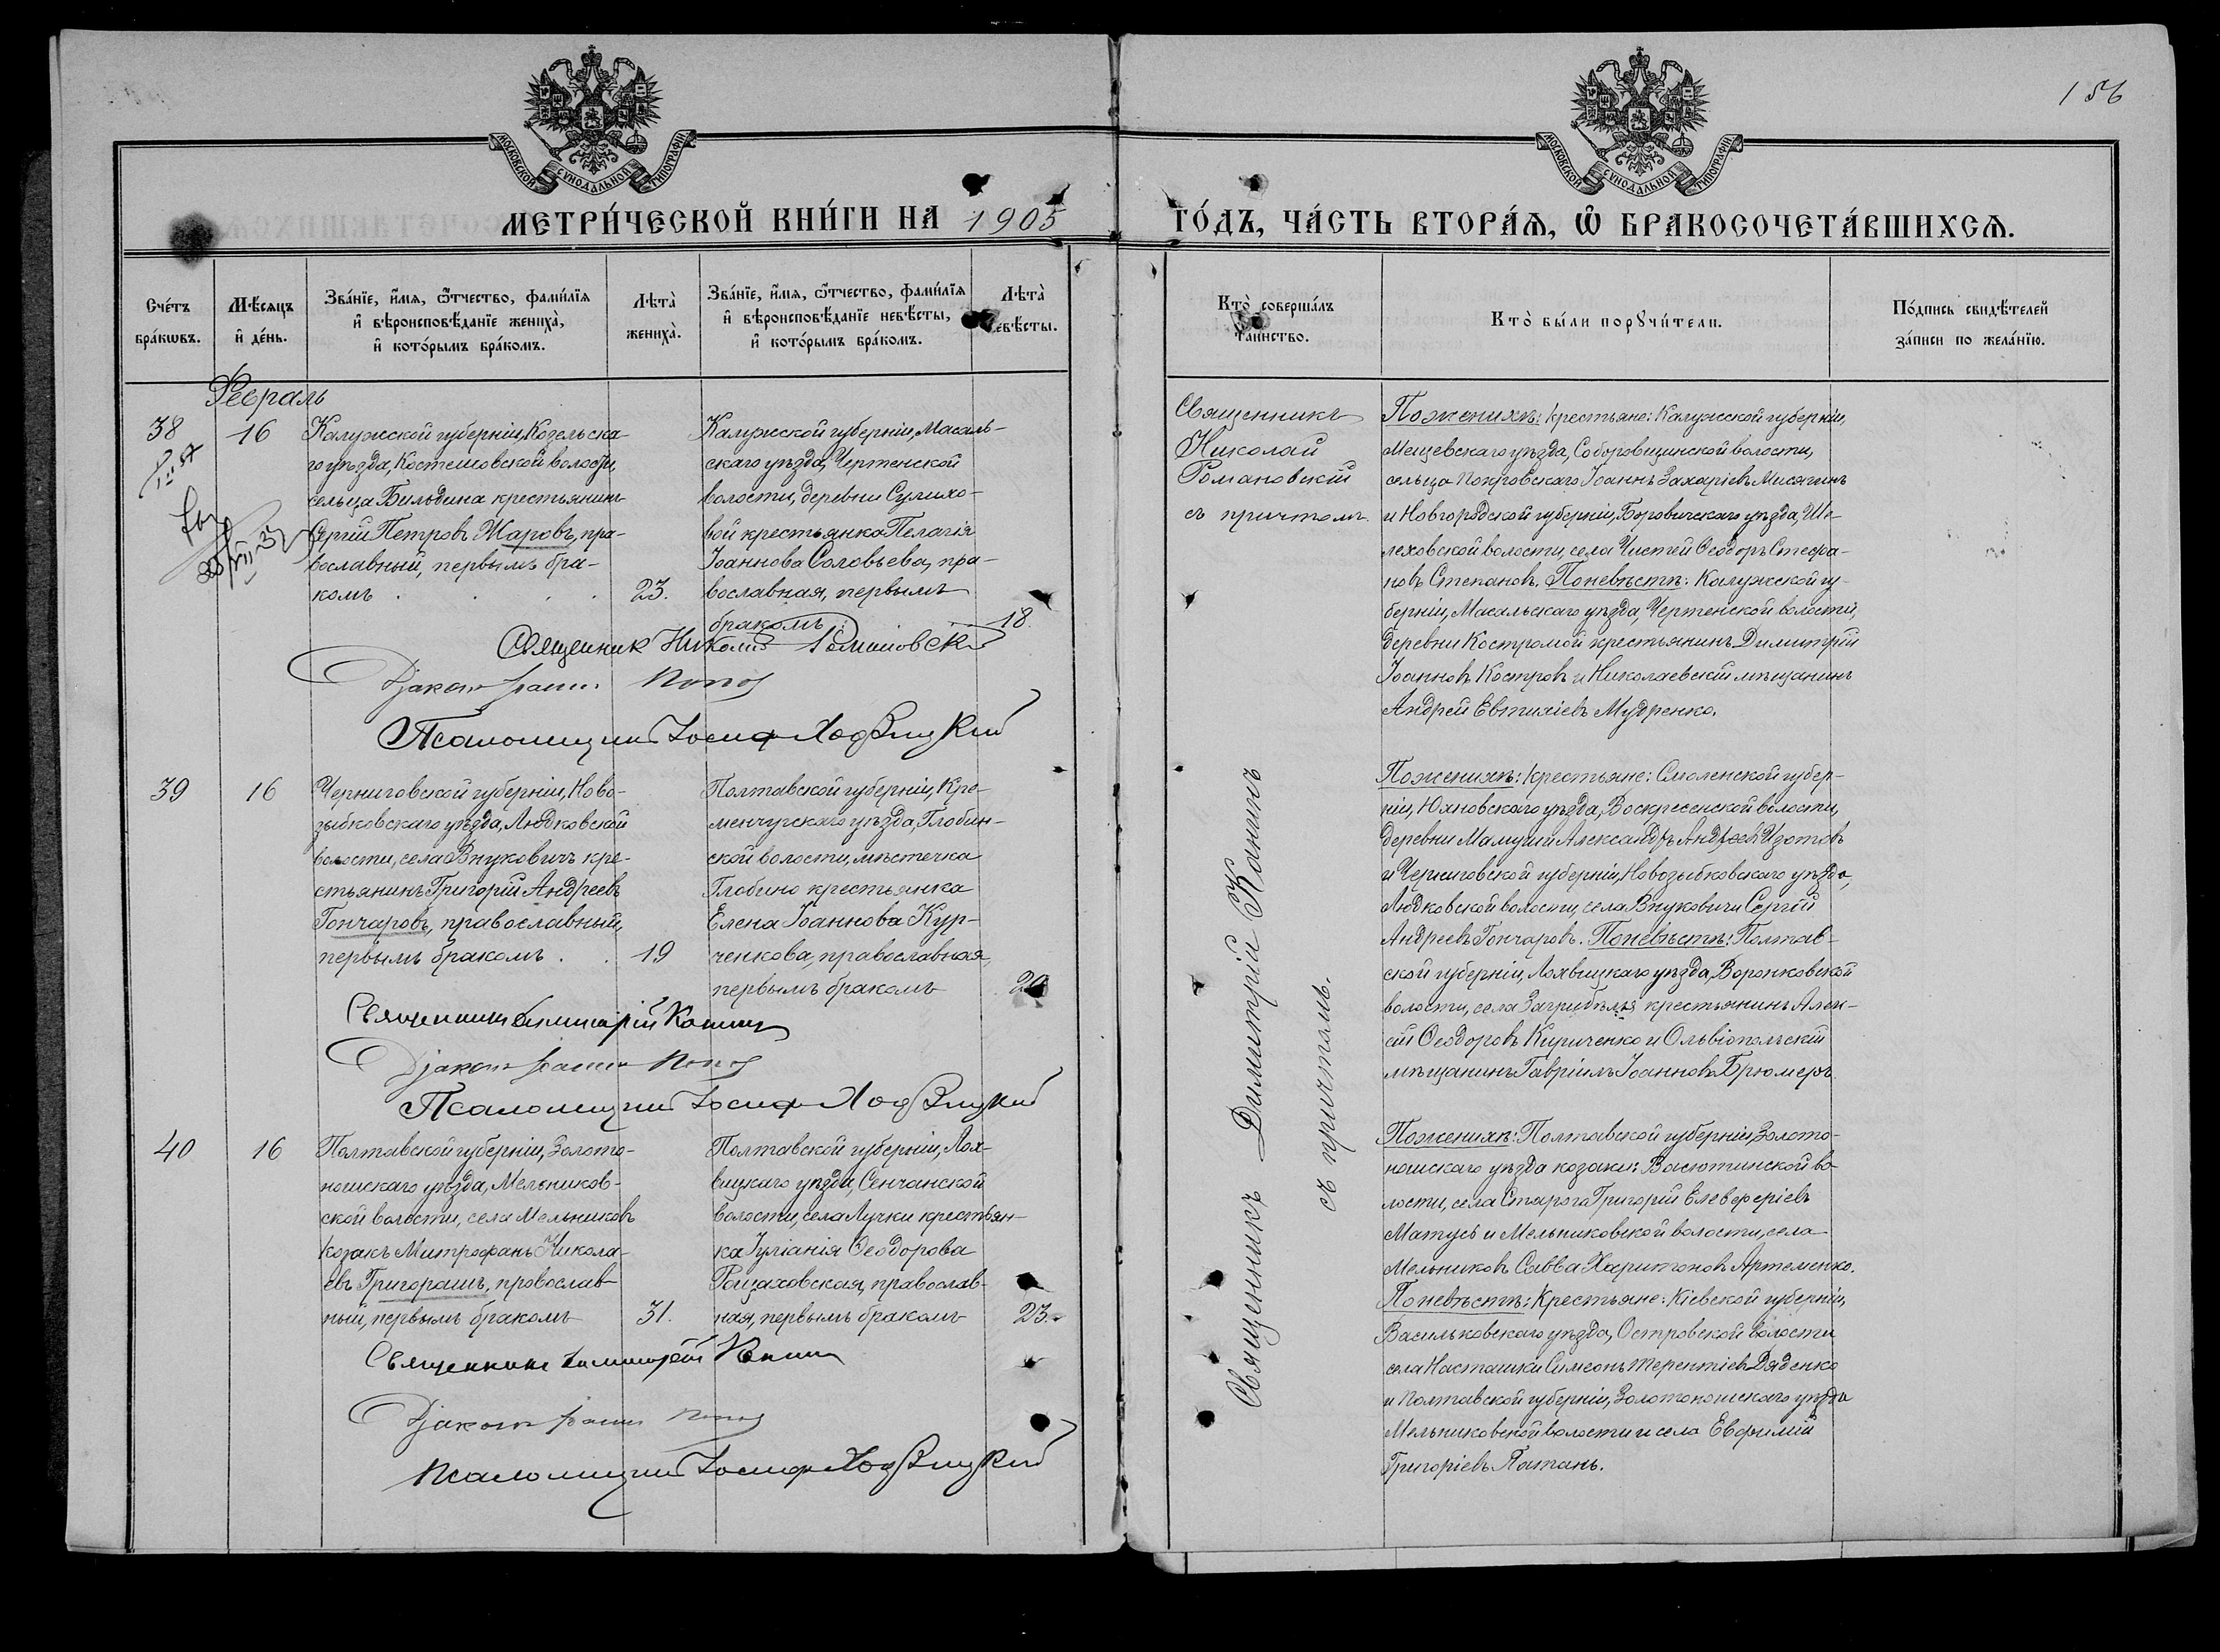 156
МОСКОВСКОЙ СУНОДАЛЬНОЙ ТИПОГРАФІИ
МОСКОВСКОЙ СУНОДАЛЬНОЙ ТИПОГРАФІИ
МЕТРИ́ЧЕСКОЙ КНИ́ГИ НА 1905
ГО́ДЪ, ЧА́СТЬ ВТОРА́Я, Ѡ БРАКОСОЧЕТА́ВШИХСЯ.
Сче́тъ
бра́кѡвъ.
Мѣ́сяцъ
и҆ де́нь.
Зва́нїе, и҆́мя, ѻ҆́тчество, фами́лїя
и҆ вѣроисповѣ́данїе жениха̀,
и҆ кото́рымъ бра́комъ.
Лѣта̀
жениха̀.
Зва́нїе, и҆́мя, ѻ҆́тчество, фами́лїя
и҆ вѣроисповѣ́данїе невѣ́сты,
и҆ кото́рымъ бра́комъ.
Лѣта̀
невѣ́сты.
Кто̀ соверша́лъ
таинство.
Кто̀ бы́ли порꙋчи́тели.
По́дпись свидѣ́телей
за́писи по жела́нїю.
Февраль
38
16
Калужской губерніи, Козельска-
го уѣзда, Костешовской волости,
сельца Бильдина крестьянинъ
Сергій Петровъ Жаровъ, пра-
вославный, первымъ бра-
комъ . . . .
23.
Калужской губерніи, Масаль-
скаго уѣзда, Чертенской
волости, деревни Сулихо-
вой крестьянка Пелагія
Іоаннова Соловьева, пра-
вославная, первымъ
бракомъ
18.
Священник Николай Романовскій
Діаконъ Іоаннъ Попов
Псаломщикъ Іосиф
Священникъ
Николай
Романовскій
съ причтомъ.
По женихѣ: крестьяне: Калужской губерніи,
Мещевскаго уѣзда, Соборовщинской волости,
сельца Покровскаго Іоаннъ Захаріевъ Мисягинъ
и Новгородской губерніи, Боровичскаго уѣзда, Ше-
леховской волости, села Чистей Ѳеодоръ Стефа-
новъ Степановъ. По невѣстѣ: Калужской гу-
берніи, Масальскаго уѣзда, Чертенской волости,
деревни Костромой крестьянинъ Димитрій
Іоанновъ Костровъ и Николаевскій мѣщанинъ
Андрей Евтихіевъ Мудренко.
39
16
Черниговской губерніи, Ново-
зыбковскаго уѣзда, Людковской
волости, села Внуковичъ кре-
стьянинъ Григорій Андреевъ
Гончаровъ, православный,
первымъ бракомъ . .
19
Полтавской губерніи, Кре-
менчугскаго уѣзда, Глобин-
ской волости, мѣстечка
Глобино крестьянка
Елена Іоаннова Кур-
ченкова, православная,
первымъ бракомъ
20
Священникъ Димитрій Канинъ
Діаконъ Іоаннъ Попов
Псаломщикъ Іосиф
Священникъ Димитрій Канинъ
съ причтомъ.
По женихѣ: крестьяне: Смоленской губер-
ніи, Юхновскаго уѣзда, Воскресенской волости,
деревни Мамуши Александръ Андреевъ Изотовъ
и Черниговской губерніи, Новозыбковскаго уѣзда,
Людковской волости, села Внуковичи Сергій
Андреевъ Гончаровъ. По невѣстѣ: Полтав-
ской губерніи, Лохвицкаго уѣзда, Воронковской
волости, села Загрибелья крестьянинъ Алек-
сій Ѳеодоровъ Кириченко и Ольвіопольскій
мѣщанинъ Гавріилъ Іоанновъ Брюмеръ.
40
16
Полтавской губерніи, Золото-
ношскаго уѣзда, Мельников-
ской волости, села Мельниковъ
козакъ Митрофанъ Никола-
евъ Григорашъ, православ-
ный, первымъ бракомъ
31.
Полтавской губерніи, Лох-
вицкаго уѣзда, Сенчанской
волости, села Лучки крестьян-
ка Іуліанія Ѳеодорова
Рощаховская, православ-
ная, первымъ бракомъ
23.
Священникъ Димитрій Канинъ
Діаконъ Іоаннъ Попов
Псаломщикъ Іосиф
По женихѣ: Полтавской губерніи, Золото-
ношскаго уѣзда козаки: Васютинской во-
лости, села Старого Григорій Елевферіевъ
Матусь и Мельниковской волости, села
Мельниковъ Савва Харитоновъ Артеменко.
По невѣстѣ: Крестьяне: Кіевской губерніи,
Васильковскаго уѣзда, Островской волости
села Насташки Симеонъ Терентіевъ Дяденко
и Полтавской губерніи, Золотоношскаго уѣзда
Мельниковской волости и села Евфимій
Григоріевъ Патанъ.